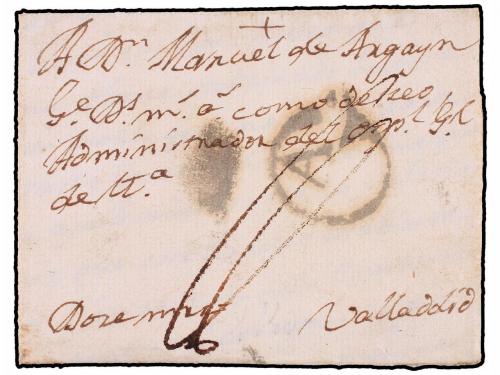 +
A Dn Manuel de Argayn
Ge Ds ms as como deseo
Administrador del Ospl Gl
de Sta
Valladolid